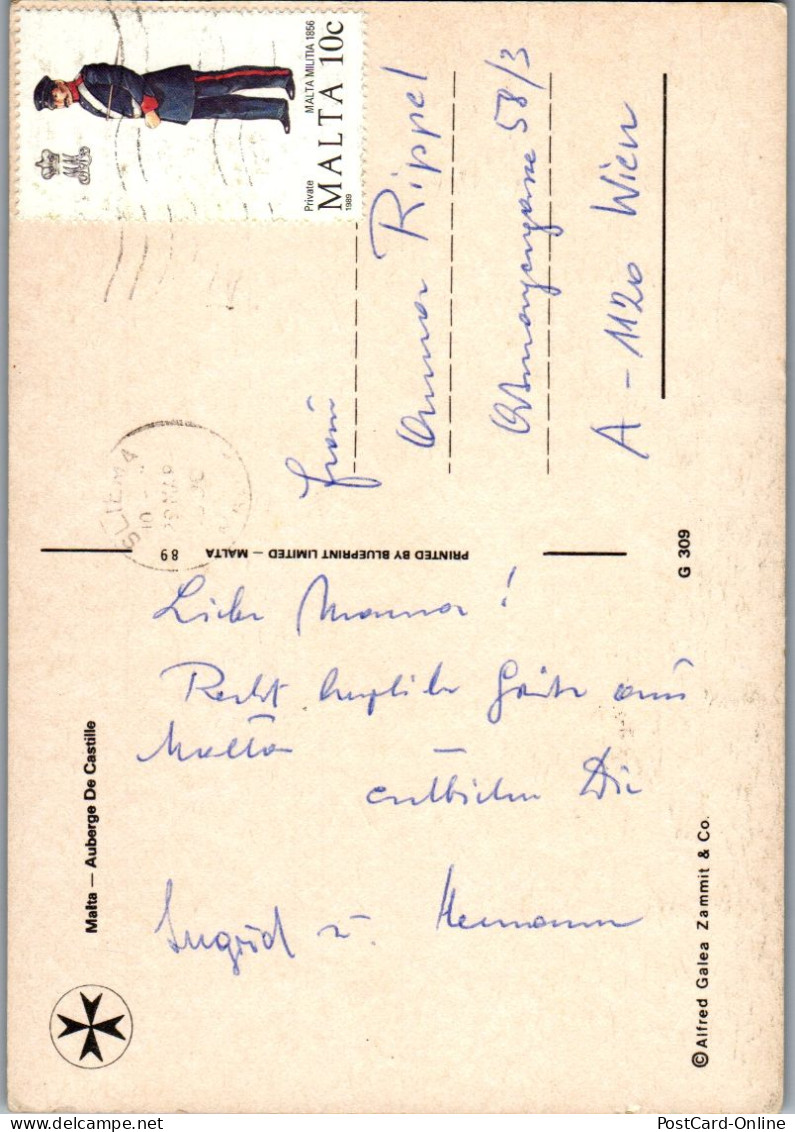 Private
MALTA MILITIA 1856
MALTA 10c
1989
SLIEMA
Malta — Auberge De Castille
89
PRINTED BY BLUEPRINT LIMITED — MALTA
G 309
© Alfred Galea Zammit & Co.
Liebe Mamma!
Recht herzliche Grüße aus
Malta —
entbieten Dir
Ingrid u. Hermann
Frau
Anna Rippel
58/3
A-1120 Wien
PostCard-Online